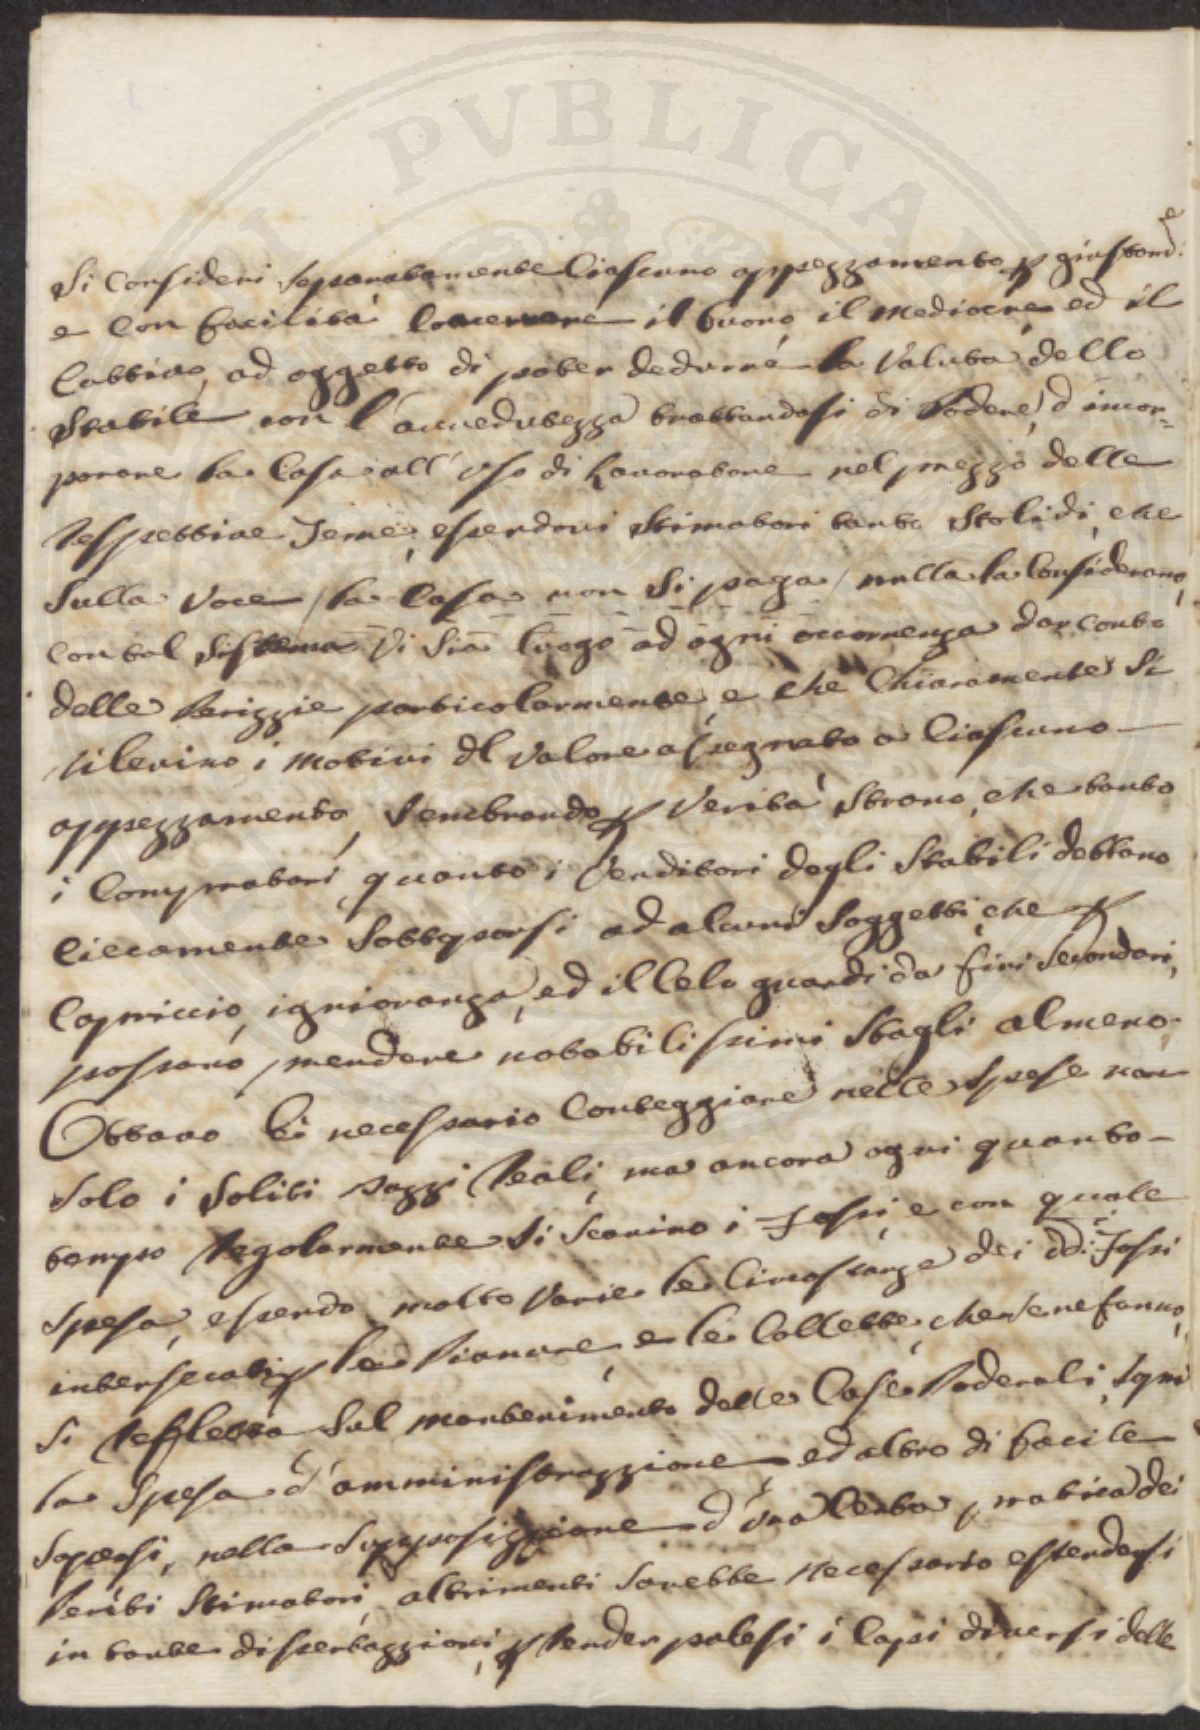 PVBLICA
Si consideri separatamente ciascuno appezzamento p giustam.e
e con facilità concernere il buono il mediocre ed il
cattivo, ad oggetto di poter dedurre la valuta dello
Stabile con l'accedutezza trattandosi di Podere, d incor=
porare la Casa all'uso di Lavoratore nel prezzo delle
respettive Terre, essendovi Stimatori tanto Stolidi, che
Sulla voce / la Casa non si paga / nulla la considerano,
con tal sistema vi sia luogo ad ogni occorrenza dar conto
delle Perizzie particolarmente, e che Chiaramente si
rilevino i motivi dl valore assegnato a Ciascuno
appezzamento, Sembrando p verità Strano, che tanto
i Compratori, quanto i Venditori degli Stabili debbano
Ciecamente Sottoporsi ad alcuni Soggetti, che p
Capriccio, ignioranza, ed il Celo guardi da fini Secondari,
possano prendere notabilissimi Sbagli almeno.
Ottavo è necessario Conteggiare nelle Spese non
Solo i soliti Dazzi Reali, ma ancora ogni quanto
tempo Regolarmente si scavino i Fossi, e con quale
Spesa, essendo molto varie le Circostanze dei dd.i Fossi
intersecati p le Pianure, e le Collette, che se ne fanno,
Si Refletta Sul mantenimento delle Case Poderali, Sopra
la Spesa d'amministrazzione, ed altro di facile
Sapersi, nella Supposizzione d'una Certa pratica dei
Periti Stimatori, altrimenti Sarebbe necessario estendersi
in tante dissertazzioni, p render palesi i Capi diversi delle